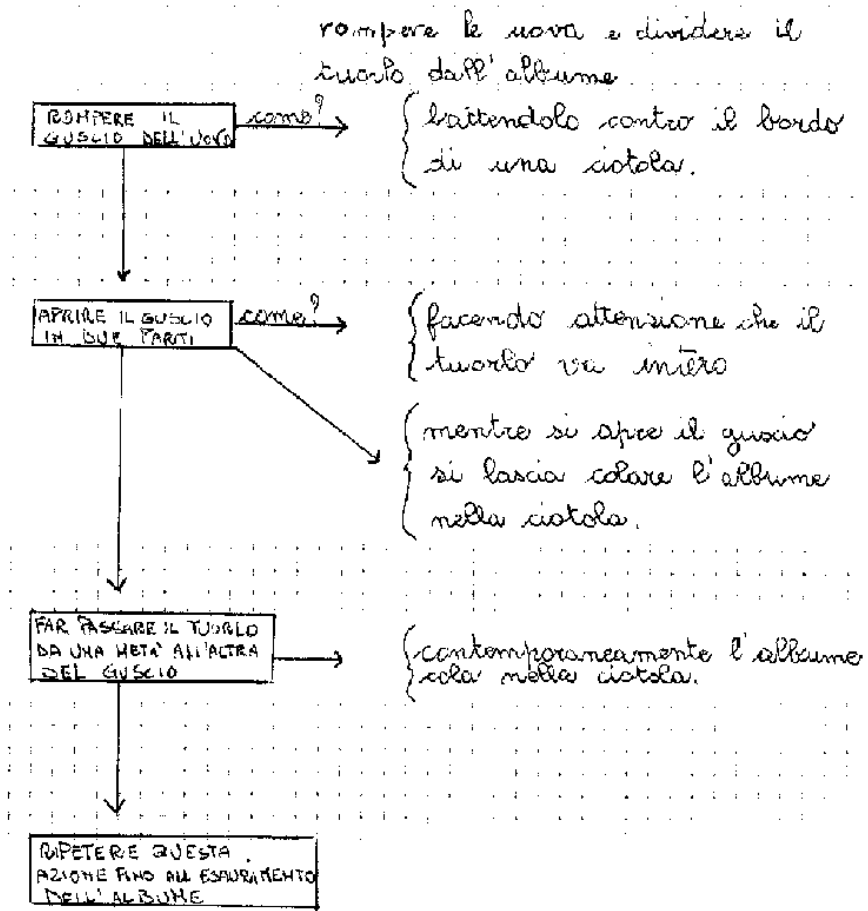 rompere le uova e dividere il
tuorlo dall'albume
ROMPERE IL
GUSCIO DELL'UOVO
come?
battendolo contro il bordo
di una ciotola.
APRIRE IL GUSCIO
IN DUE PARTI
come?
facendo attenzione che il
tuorlo va intero
mentre si apre il guscio
si lascia colare l'albume
nella ciotola.
FAR PASSARE IL TUORLO
DA UNA METÀ ALL'ALTRA
DEL GUSCIO
contemporaneamente l'albume
cola nella ciotola.
RIPETERE QUESTA
AZIONE FINO ALL ESAURIMENTO
DELL'ALBUME